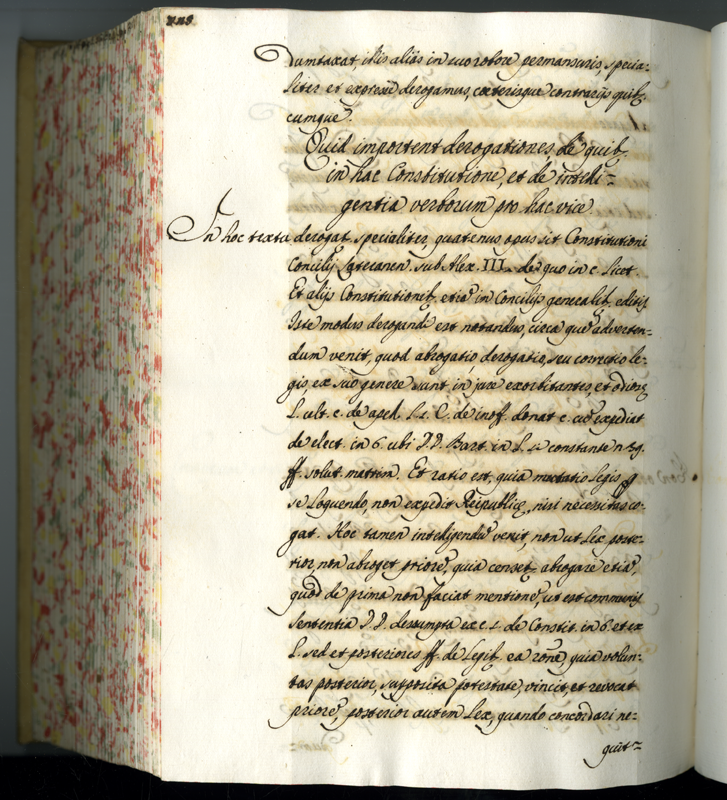 228.
dumtaxat illis aliàs in suo robore permansuris, specia-
liter et expresse derogamus, cæterisque contrarijs quib⁹
cumque.
Quid importent derogationes, de quib⁹
in hac Constitutione, et de intelli-
gentia verborum pro hac vice.
In hoc textu derogat, specialiter, quatenus opus sit Constitutioni
Concilij Lateranen. sub Alex. III. de quo in c. Licet.
Et alijs Constitutionib. etiã in Concilijs generalib. editis
Iste modus derogandi est notandus, circa quẽ adverten-
dum venit, quod abrogatio, derogatio, seu correctio le-
gis, ex suo genere sunt in jure exorbitantes, et odiosæ
L. ult. c. de apell. L. 1. C. de inoff. donat. c. cũ expediat
de elect. in 6. ubi D.D. Bart. in L. si constante n. 29.
ff. solut. matrim. Et ratio est, quia mutatio legis
se loquendo, non expedit Reipublicæ, nisi necessitas co-
gat. Hoc tamen intelligendũ venit, non ut Lex poste-
rior, non abroget priorẽ, quia censet. abrogare etiã,
quod de prima non faciat mentionẽ, ut est communis
sententia D.D. dessumpta ex c. 1. de Constit. in 6. et ex
L. sed et posteriores ff. de Legib. ea rõne, quia volun-
tas posterior, supposita potestate, vincit, et revocat
priorẽ, posterior autem Lex, quando concordari ne-
quit